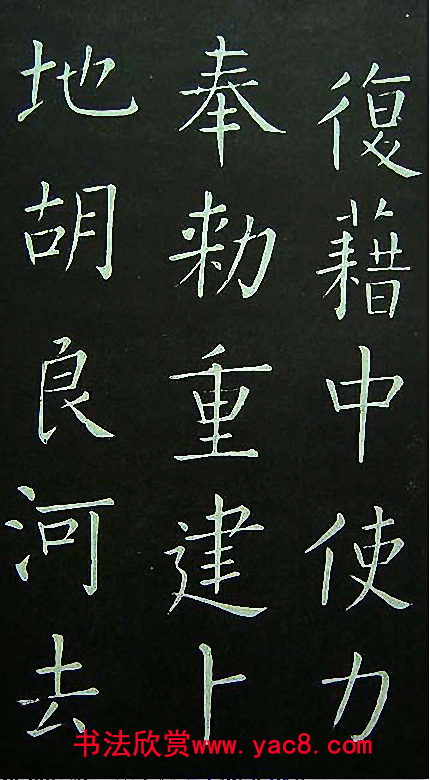 復藉中使力
奉勑重建卜
地胡良河去
书法欣赏www.yac8.com